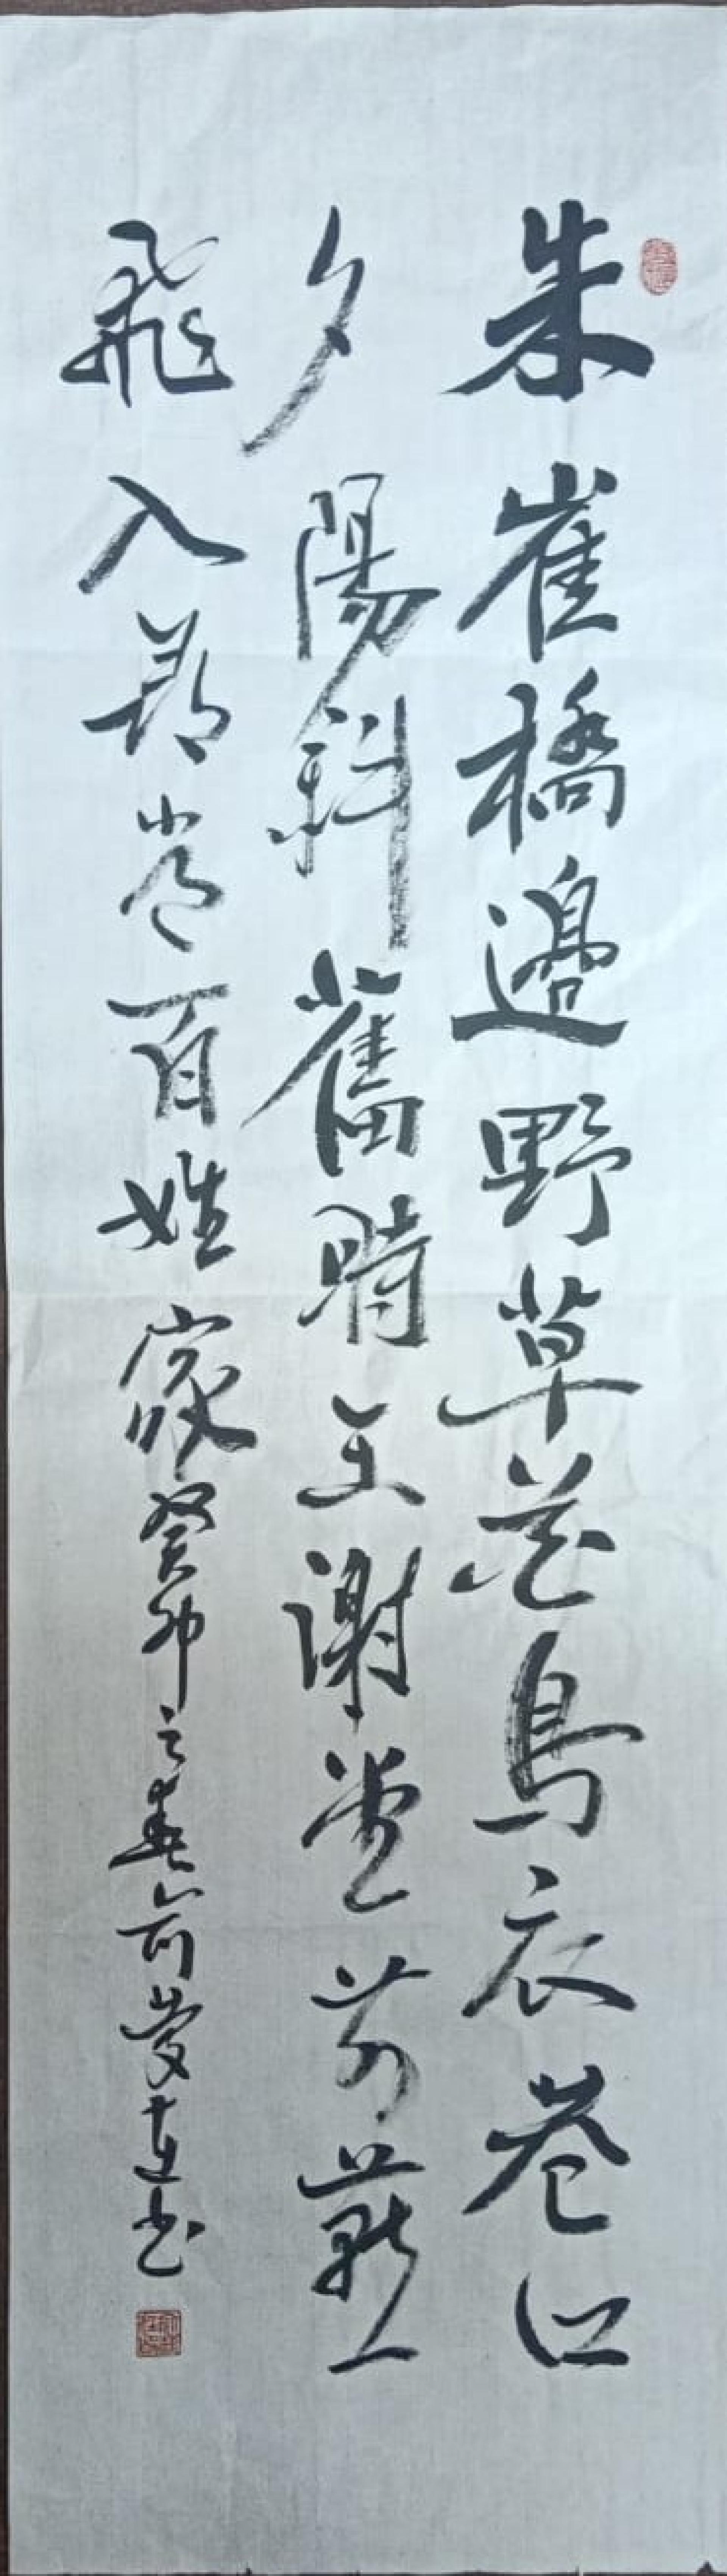 朱雀橋邊野草花烏衣巷口
夕陽斜舊時王謝堂前燕
飛入尋常百姓家癸卯之春書